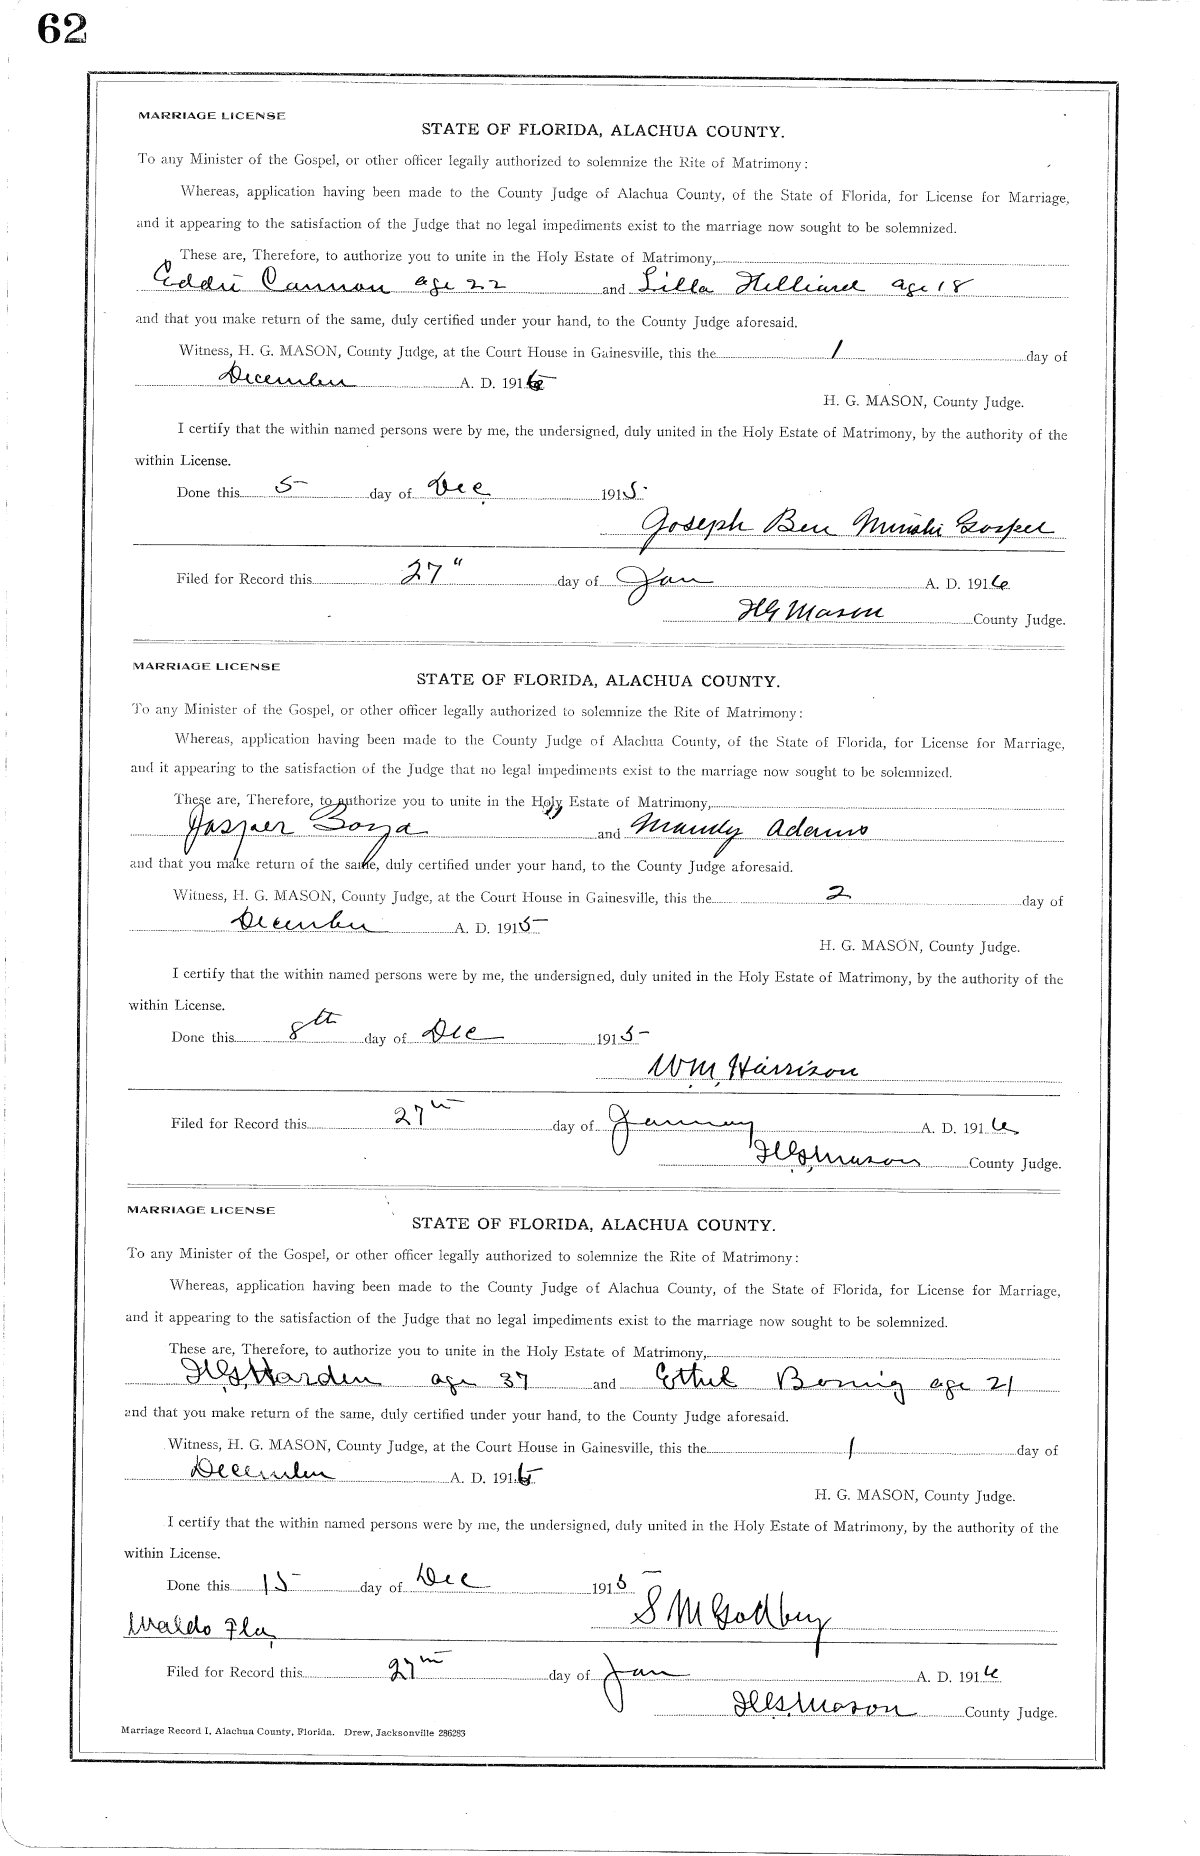 62
MARRIAGE LICENSE
STATE OF FLORIDA, ALACHUA COUNTY.
To any Minister of the Gospel, or other officer legally authorized to solemnize the Rite of Matrimony:
Whereas, application having been made to the County Judge of Alachua County, of the State of Florida, for License for Marriage,
and it appearing to the satisfaction of the Judge that no legal impediments exist to the marriage now sought to be solemnized.
These are, Therefore, to authorize you to unite in the Holy Estate of Matrimony,
Eddie Cannon age 22 and Lilla Hilliard age 18
and that you make return of the same, duly certified under your hand, to the County Judge aforesaid.
Witness, H. G. MASON, County Judge, at the Court House in Gainesville, this the 1 day of
December A. D. 1915
H. G. MASON, County Judge.
I certify that the within named persons were by me, the undersigned, duly united in the Holy Estate of Matrimony, by the authority of the
within License.
Done this 5 day of Dec 1915
Joseph Ben Gospel
Filed for Record this 27" day of Jan A. D. 1916
HG Mason County Judge.
MARRIAGE LICENSE
STATE OF FLORIDA, ALACHUA COUNTY.
To any Minister of the Gospel, or other officer legally authorized to solemnize the Rite of Matrimony:
Whereas, application having been made to the County Judge of Alachua County, of the State of Florida, for License for Marriage,
and it appearing to the satisfaction of the Judge that no legal impediments exist to the marriage now sought to be solemnized.
These are, Therefore, to authorize you to unite in the Holy Estate of Matrimony,
Jasper and Mandy Adams
and that you make return of the same, duly certified under your hand, to the County Judge aforesaid.
Witness, H. G. MASON, County Judge, at the Court House in Gainesville, this the 2 day of
December A. D. 1915
H. G. MASON, County Judge.
I certify that the within named persons were by me, the undersigned, duly united in the Holy Estate of Matrimony, by the authority of the
within License.
Done this 8th day of Dec 1915
W.M. Harrison
Filed for Record this 27th day of January A. D. 1916
H.G. Mason County Judge.
MARRIAGE LICENSE
STATE OF FLORIDA, ALACHUA COUNTY.
To any Minister of the Gospel, or other officer legally authorized to solemnize the Rite of Matrimony:
Whereas, application having been made to the County Judge of Alachua County, of the State of Florida, for License for Marriage,
and it appearing to the satisfaction of the Judge that no legal impediments exist to the marriage now sought to be solemnized.
These are, Therefore, to authorize you to unite in the Holy Estate of Matrimony,
H.G. Harden age 37 and Ethel age 21
and that you make return of the same, duly certified under your hand, to the County Judge aforesaid.
Witness, H. G. MASON, County Judge, at the Court House in Gainesville, this the 1 day of
December A. D. 1915
H. G. MASON, County Judge.
I certify that the within named persons were by me, the undersigned, duly united in the Holy Estate of Matrimony, by the authority of the
within License.
Done this 15 day of Dec 1915
S M Godbey
Waldo Fla,
Filed for Record this 27th day of Jan A. D. 1916
H.G. Mason County Judge.
Marriage Record I, Alachua County, Florida. Drew, Jacksonville 286283